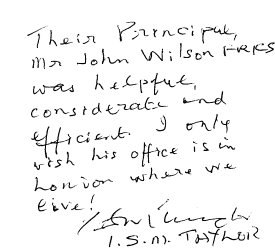 Their Principal,
Mr John Wilson FRICS
was helpful,
considerate and
efficient. I only
wish his office is in
London where we
live!
I.S.M.